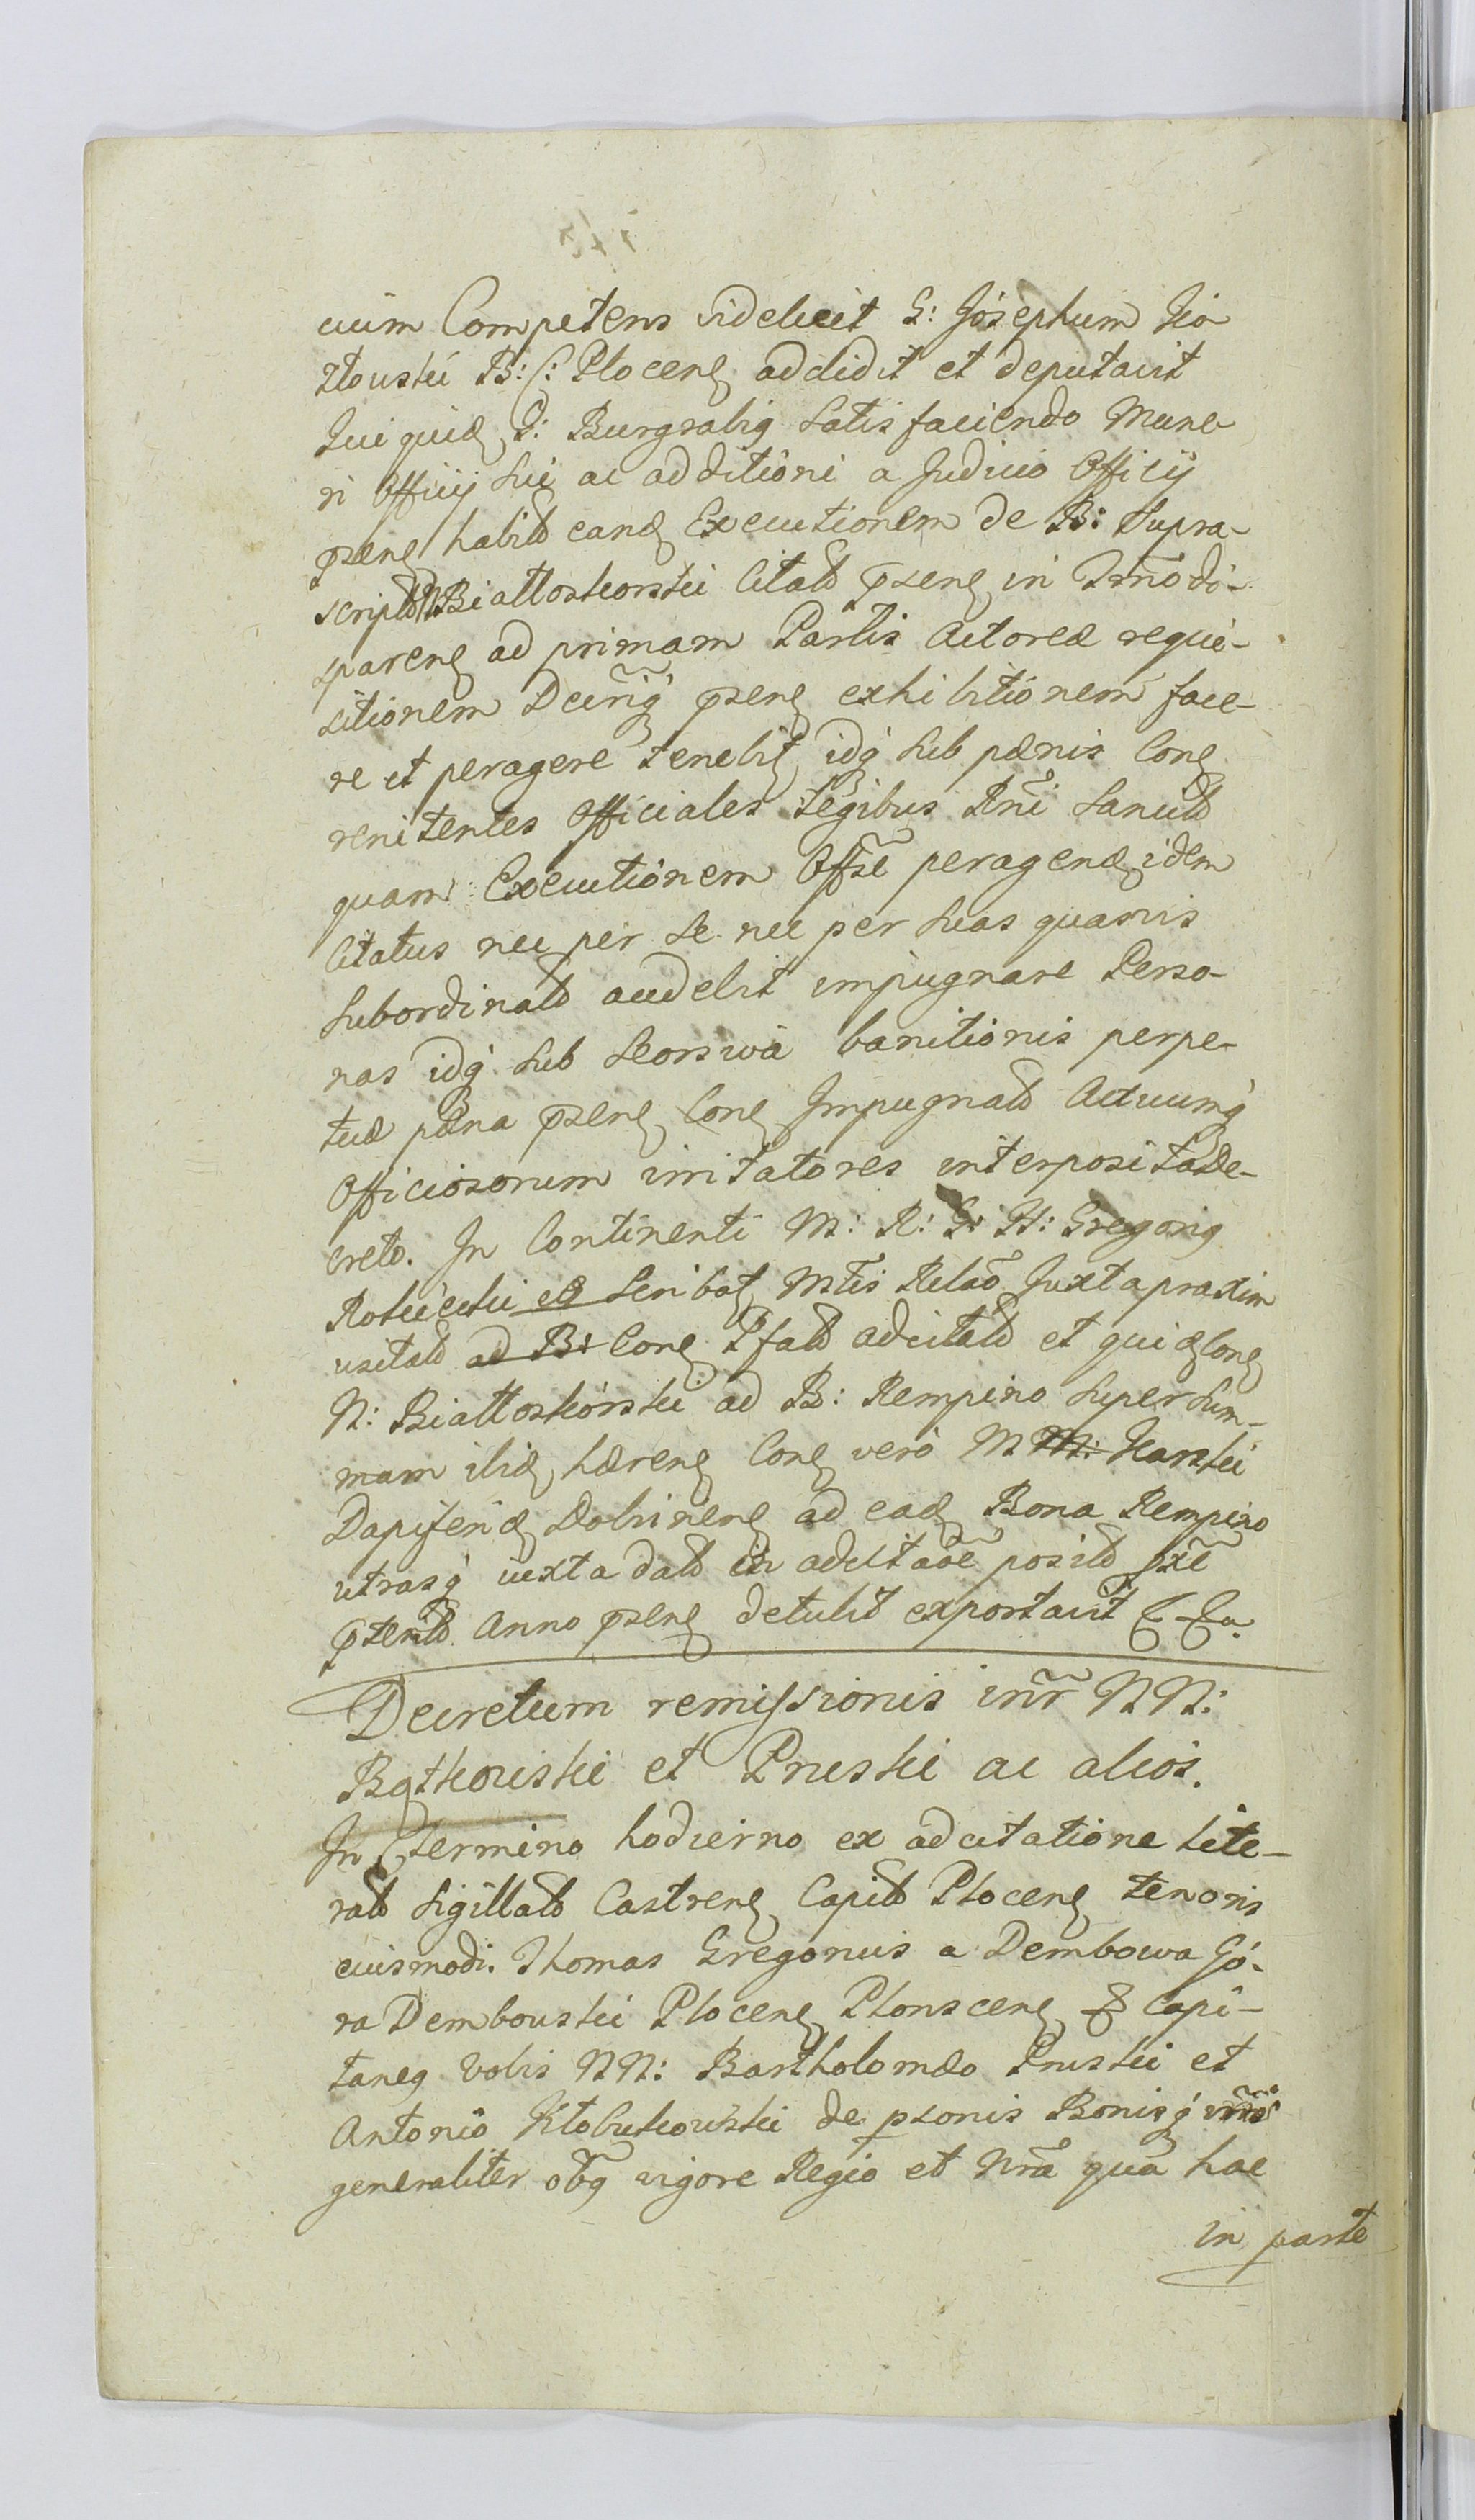 cuim Competens videlicet G: Josephum Jio
ztouskú B: C: Plocenę addidit et deputavit
Qui quidę G: Burgrabię Satisfaciendo Mune-
ri Officij Sui ac additioni a Judicio Officij
pszenę habitð eandę Executionem de B: Supra-
scriptð N Biattoskorskii Citatð pszenę in Trm̃o di-
sparenę ad primam Partis Actoreæ requi-
sitionem Decr̃ig̃ pszenę exhibitionem face-
re et peragere tenebitę idq́ Sub pœnis Conę
renitentes Officiales Legibus Rñi Sancitð
quam Executionem Offs̃e peragendę idem
Citatus nec per Se nec per Suas quasvis
Subordinatð audebit impugnare Perso-
nas idq́ Sub Seorsiva banitionis perpe-
tuæ pœna pszenę Conę Impugnatð Actuumq́
Officiosorum irritatores interposita De-
creto. In Continenti M: R: G: H: Gregorię
Rokicki Scribatę Mt̃is Relað Juxta praxim
usitatð ad B: Conę Pfatð adcitatð et quidę Conę
N: Biattoskórskii ad B: Rempino Super Sum-
mam ibidę hærenę Conę verò M M: Karskii
Dapiferidę Dobrinenę ad eadę Bona Rempino
utrasq́ iuxta datð in adcitaõe positð sxẽ
pszentð Anno pszenę detulit exportavit
Decretum remissionis inr̃ NN:
Bątkouskii et Pruskii ac alios.
In Termino hodierno ex adcitatione lite-
ratð Sigillatð Castrenę Capitð Plocenę tenoris
eiusmodi. Thomas Gregorius a Dembowa Gó-
ra Dembouskii Plocenę Plonscenę & Capi-
tanę Vobis NN: Bartholomæo Pruskii et
Antonio Kłobukowskii de psonis Bonisq́ vr̃is
generaliter obg̃ vigore Regio et Nr̃a qua hac
in parte